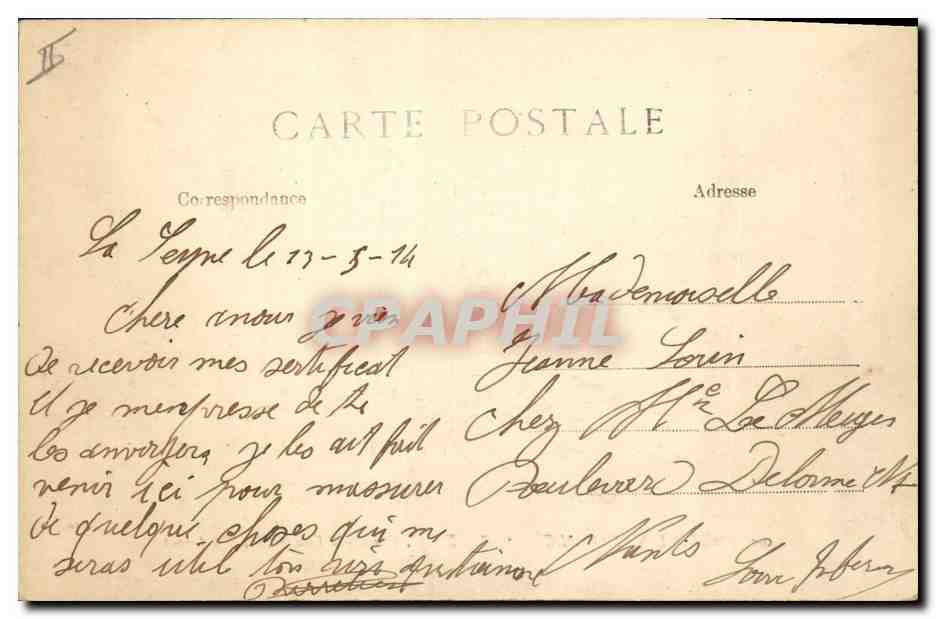 II
CARTE POSTALE
Correspondance
Adresse
La Seyne le 13-5-14
Chere amour je vien
de recevoir mes sertificat
il je m'empresse de te
les anvoyera je les ait fait
venir ici pour massurer
de quelque choses qui me
seras util ton
Mademoiselle
Jeanne Lorin
Chez Me Le
Boulevard Delorme N
Nants
CPAPHIL